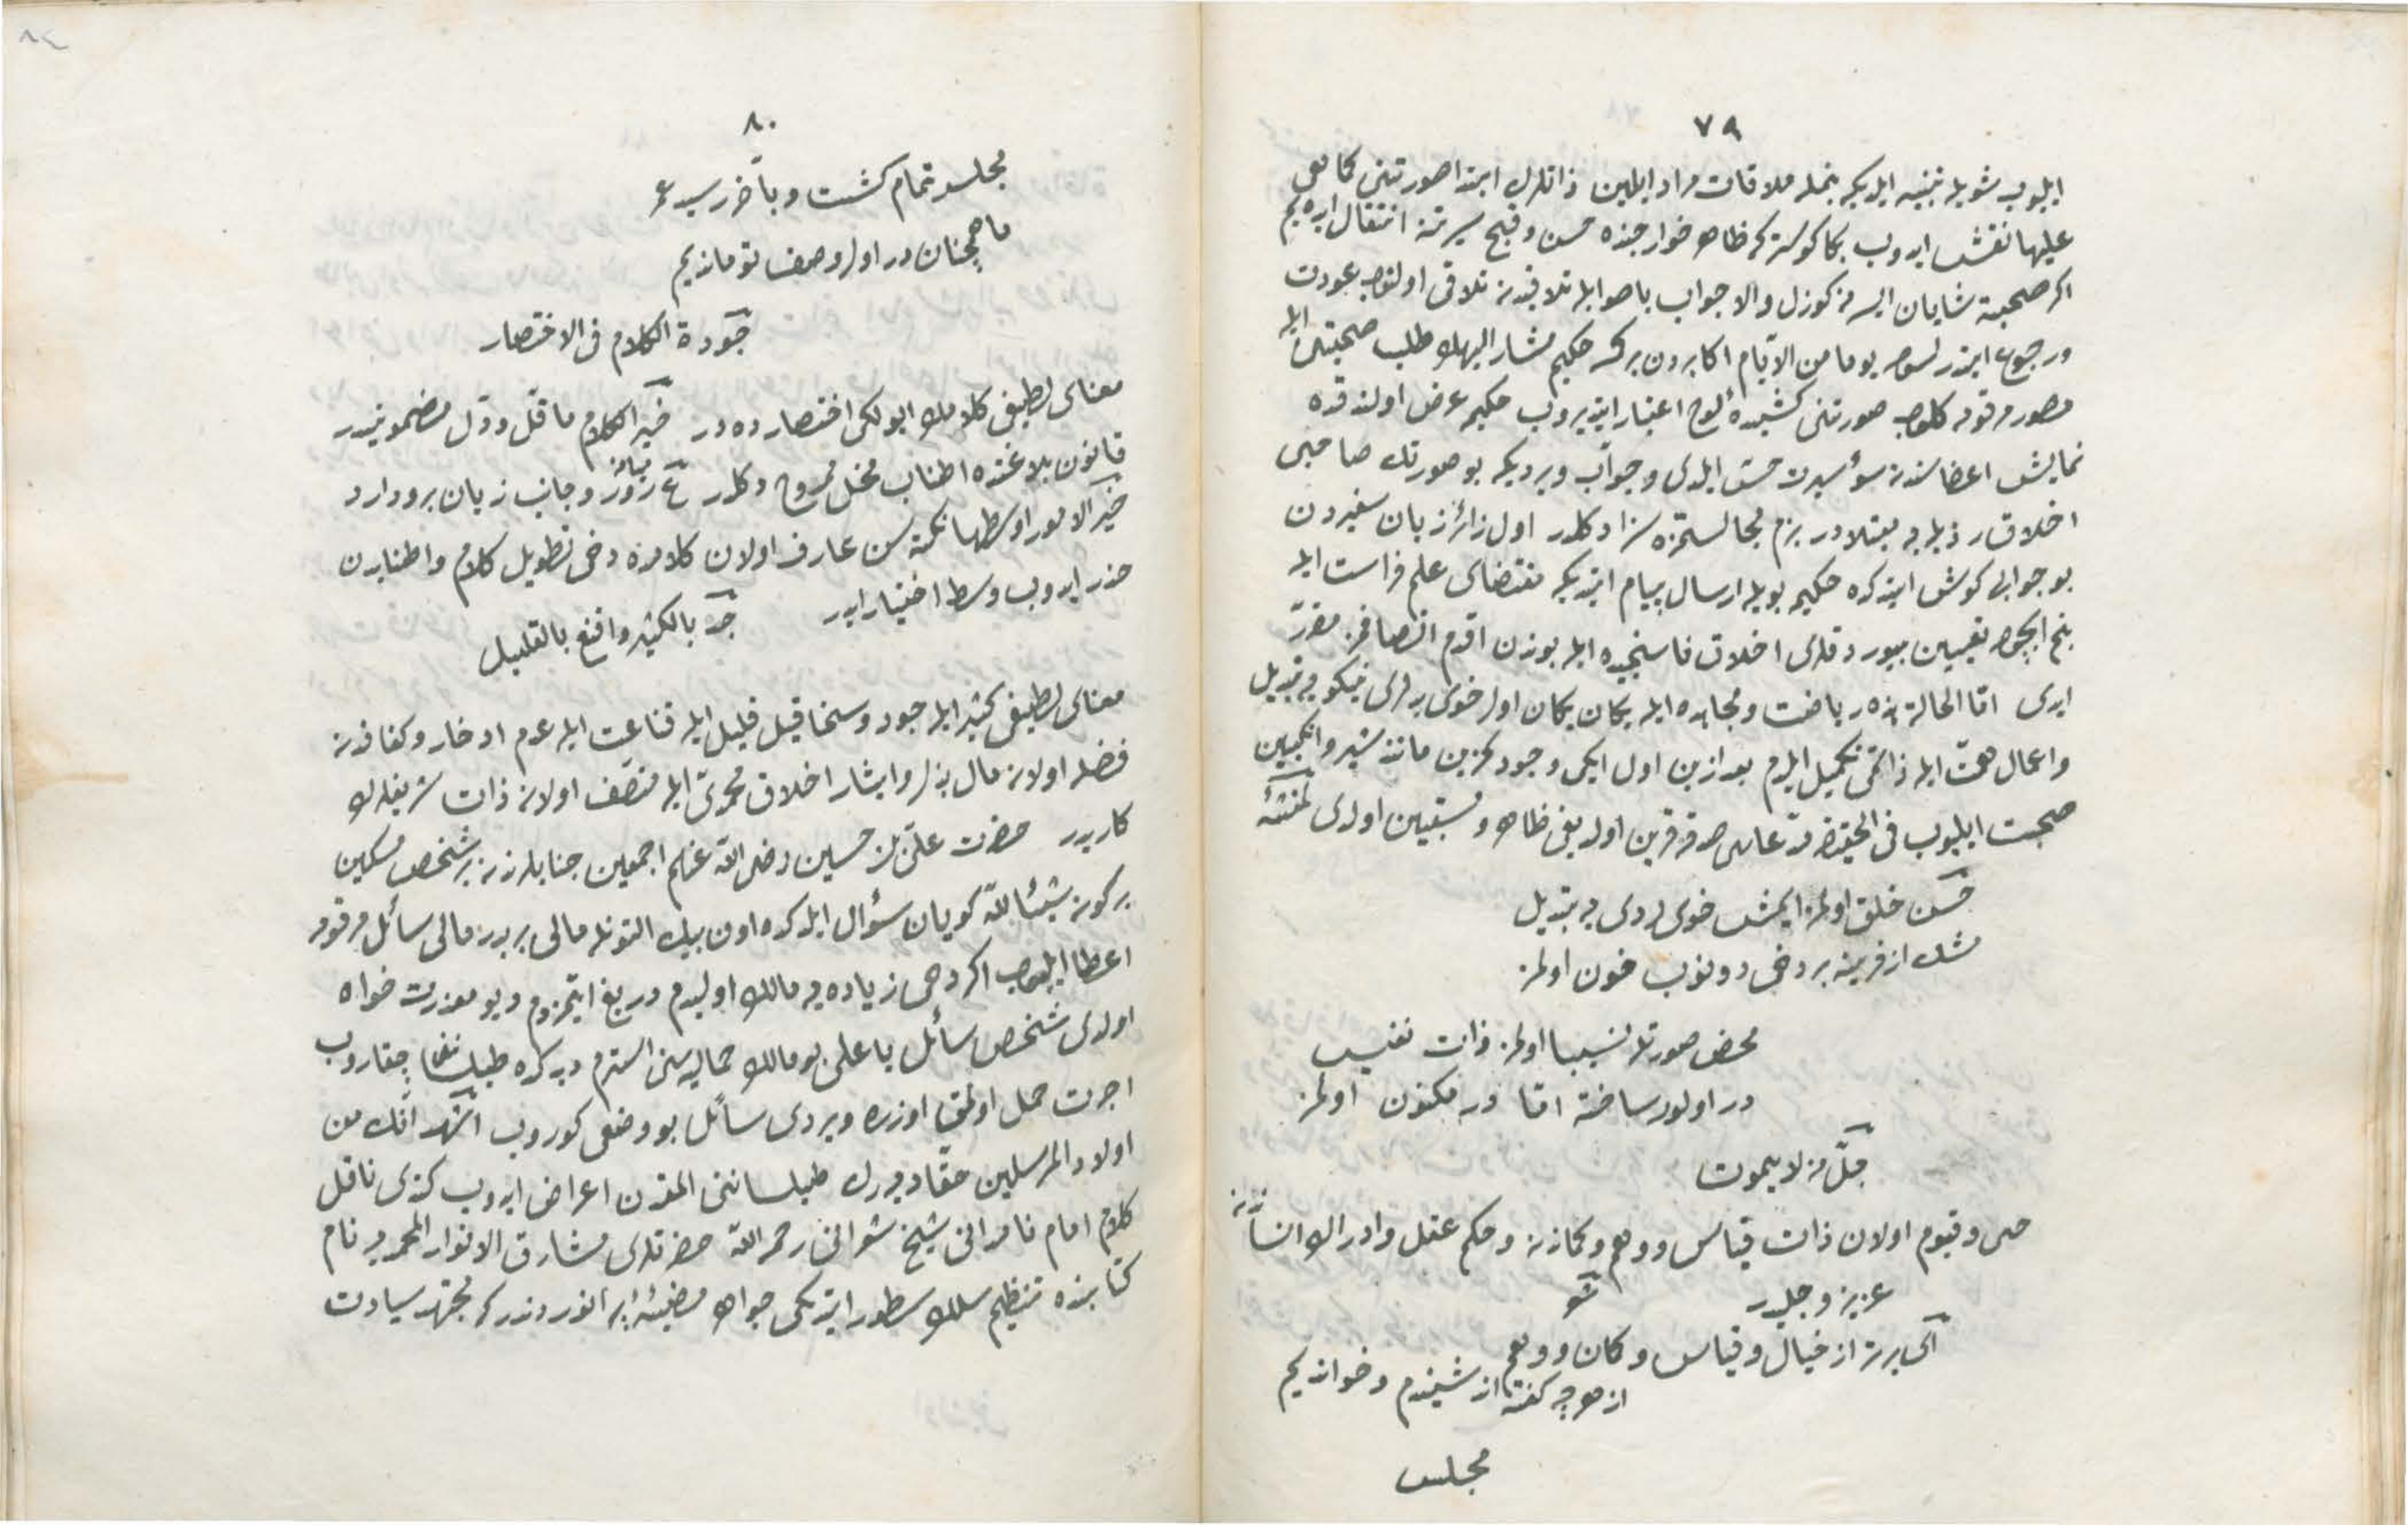 ٧٩
ايليوب شويله تنبيه ايلديكه بنمله ملاقات مراد ايلين ذاتلرك ابتدا صورتنى كما هى
عليها نقش ايدوب بكا كوستر كه ظاهر خوارجنده حسن وقبح سيرتنه انتقال ايدهيم
اكر صحبته شايان ايسه نه كوزل والا جواب باصوابله تلاقيدن اولنوب عودت
ورجوع ايتدرلسون يوما من الايام اكابردن بركسه حكيم مشار اليهك طلب صحبتيله
مصور مرقومه كلوب صورتنى كشيدهٔ لوح اعتبار ايتديروب حكيمه عرض اولندقده
نمايش اعضاسندن سوء سيرت حس ايلدى وجواب ويرديكه بو صورتك صاحبى
اخلاق رذيله يه مبتلادر بزم مجالستمزه سزا دكلدر اول زائر زبان سفيردن
بو جوابى كوش ايتدكده حكيمه بويله ارسال پيام ايتديكه مقتضاى علم فراست ايله
بنم ايچون تعيين بيوردقلرى اخلاق ناسنجيده ايله بوندن اقدم اتصافم مقرر
ايدى اما الحالة هذه رياضت ومجاهده ايله يكان يكان اول خوى بدلرى نيكويه تبديل
واعمال همت ايله ذاتمى تكميل ايلدم بعد ازين اول ايكى وجود كزين مانند شير وانكبين
صحبت ايليوب فى الحقيقه مدعاسى صدقه قرين اولديغى ظاهر ومستبين اولدى لمنشئه
حسن خلق اولمز ايمش خوى ردى يه تبديل
مشك ازفرينه بر دخى دونوب خون اولمز
محض صورتله نسيبا اولمز ذات نفيس
در اولور ساخته اما در مكنون اولمز
جل من لا يموت
حى وقيوم اولان ذات قياس ووهم وكماندن وحكم عقل وادراك انساندن
عزيز وجليلدر
اى برتر از خيال وقياس وكمان ووهم
از هرچه كفته اند شنيدم وخوانديم
مجلس
٨٠
مجلس تمام كشت وبآخر رسيد عمر
ما همچنان در اول وصف تو مانديم
جودة الكلام فى الاختصار
معناى لطيفى كلامك ايولكى اختصارده در خير الكلام ما قل ودل مضمونيدر
قانون بلاغتده اطناب مخل ممدوح دكلدر وجانب زيان برودارد
خير الامور اوسطها نكته سن عارف اولان كلامده دخى تطويل كلام واطنابدن
حذر ايدوب وسط اختيار ايدر جد بالكثير واقنع بالقليل
معناى لطيفى كثير ايله جود وسخا قيل قليل ايله قناعت ايله عدم ادخار وكفافدن
فضله اولان مال بذل وايثار اخلاق محمدى ايله متصف اولان ذات شريفلرك
كاريدر حضرت على بن حسين رضى الله عنهم اجمعين جنابلرندن بر شخص مسكين
بر كون شيئا لله كويان سؤال ايلدكده اون بيك التونله مالى بر بدره مالى سائل مرقومه
اعطا ايليوب اكر دخى زياده يه مالك اوليدم دريغ ايتمزدم ديو معذرت خواه
اولدى شخص سائل يا على بو مالك حماليه سنى استرم ديدكده طيلسانى چقاروب
اجرت حمل اولمق اوزره ويردى سائل بو وضعى كوروب اشهد انك من
اولاد المرسلين حقا ديه رك طيلساننى المقدن اعراض ايدوب كندى ناقل
كلام امام نامدانى شيخ شعرانى رحمه الله حضرتلرى مشارق الانوار المحمديه نام
كتابنده تنظيم سلك سطور ايتديكى جواهر مضيئه انوردندر كه مجتهد سيادت